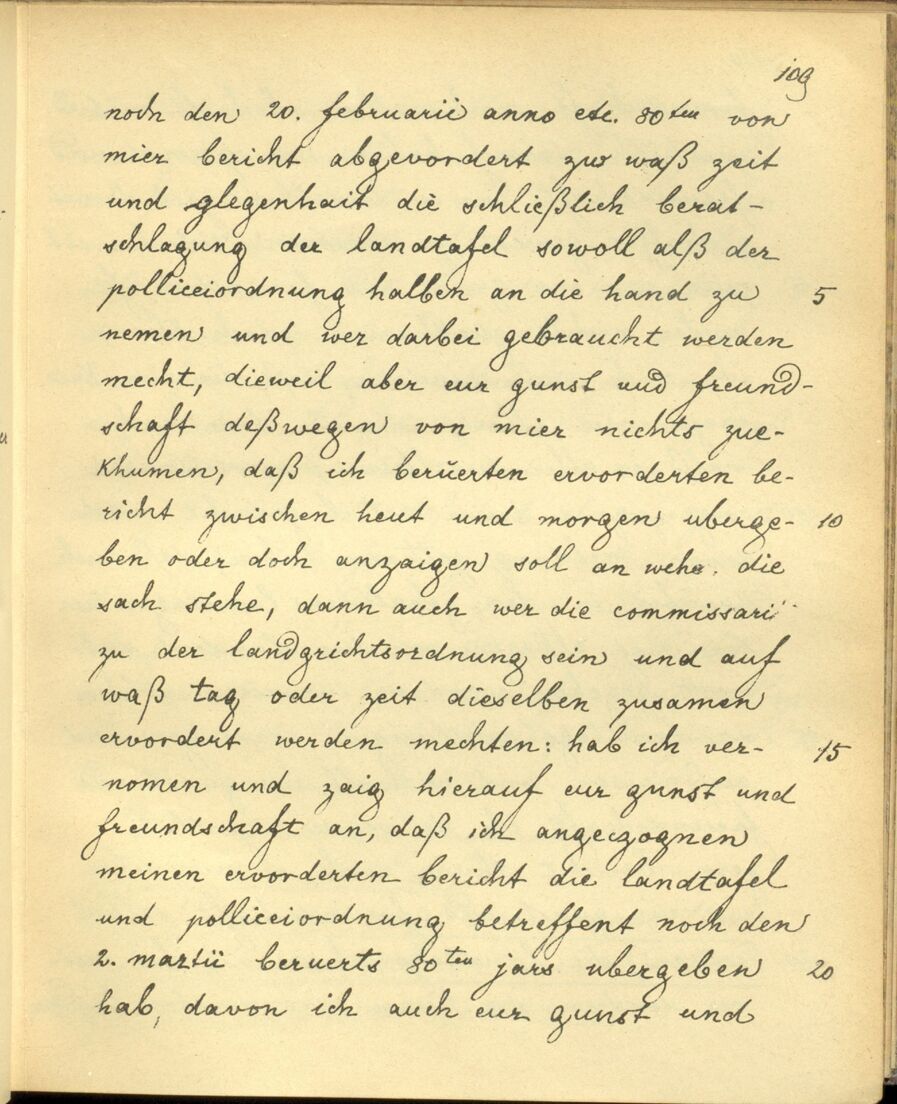 109
noch den 20. februarii anno etc. 80ten von
mier bericht abgevordert zu waß zeit
und glegenhait die schließlich berat-
schlagung der landtafel sowoll alß der
polliceiordnung halben an die hand zu 5
nemen und wer darbei gebraucht werden
mecht, dieweil aber eur gunst und freund-
schaft deßwegen von mier nichts zue-
khumen, daß ich berüerten ervorderten be-
richt zwischen heut und morgen uberge- 10
ben oder doch anzaigen soll an wehe. die
sach stehe, dann auch wer die commissarii
zu der landgrichtsordnung sein und auf
waß tag oder zeit dieselben zusamen
ervordert werden mechten: hab ich ver- 15
nomen und zaig hierauf eur gunst und
freundschaft an, daß ich angeczognen
meinen ervorderten bericht die landtafel
und polliceiordnung betreffent noch den
2. martii beruerts 80ten jars ubergeben 20
hab, davon ich auch eur gunst und